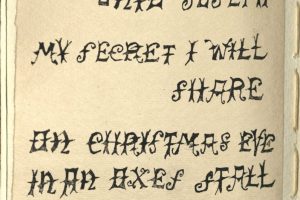 MY SECRET I WILL
SHARE
ON CHRISTMAS EVE
IN AN OXES STALL